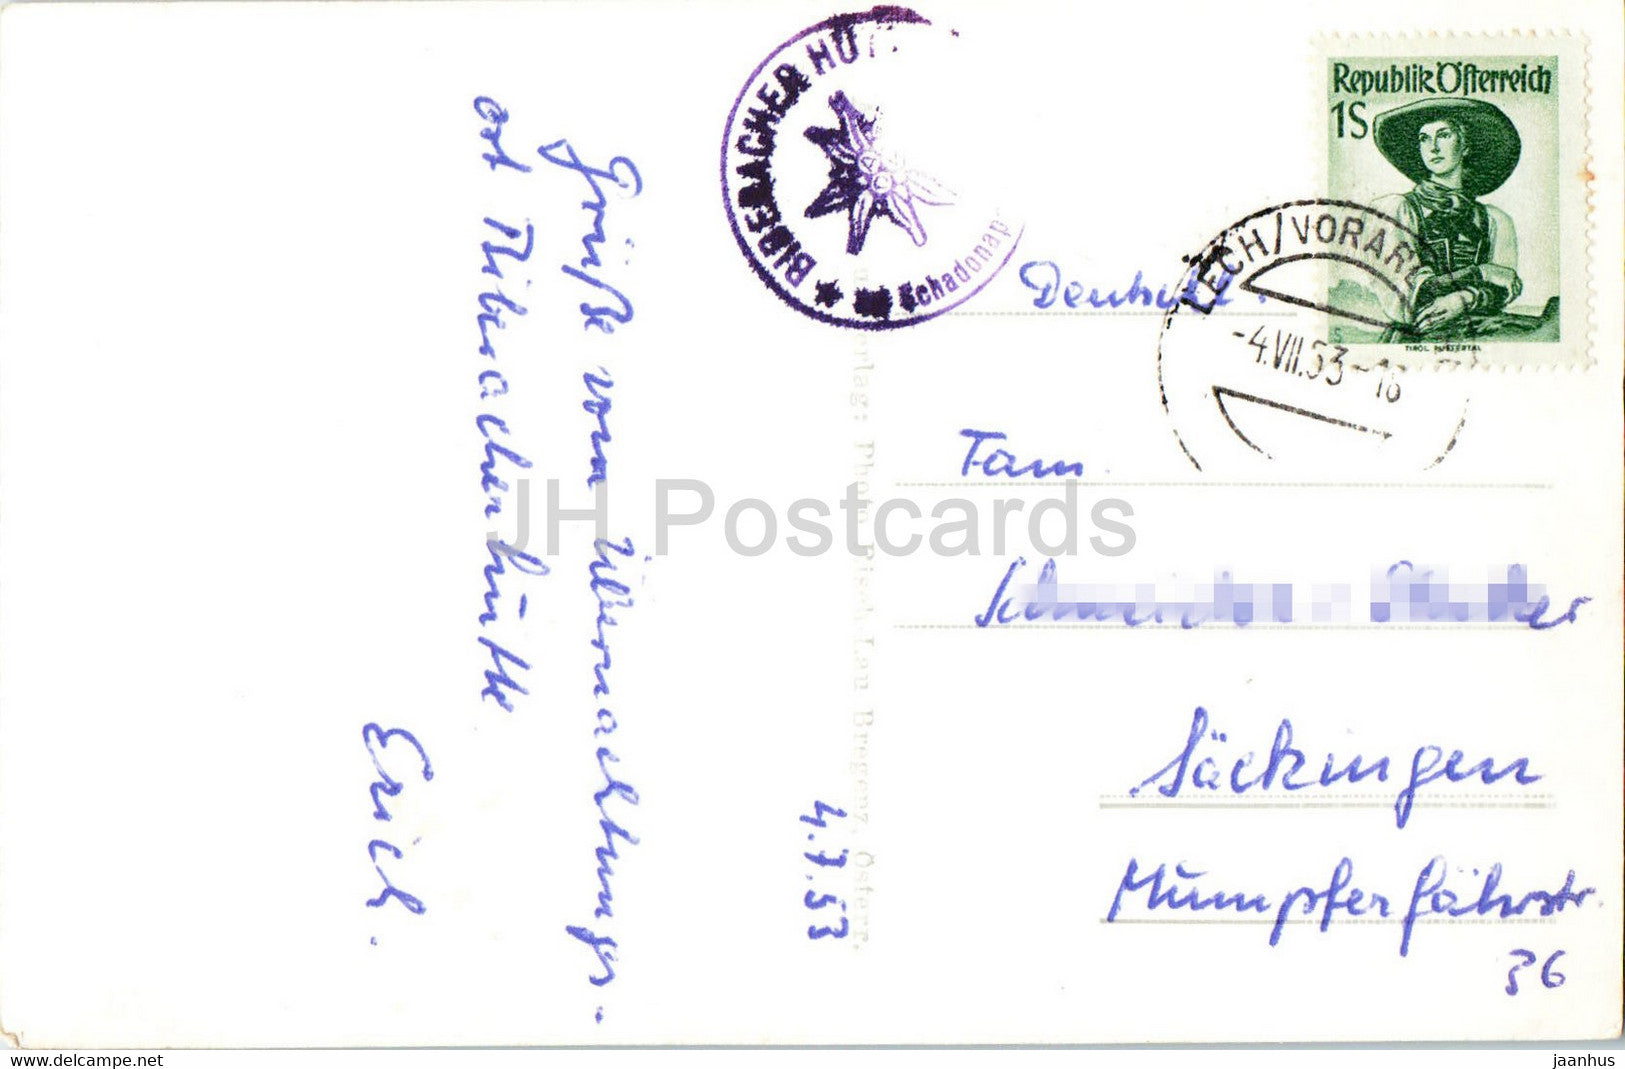 BIBERACHER HÜT
Schadonap
Republik Österreich
1S
TIROL PUSTERTAL
LECH/VORARL
-4.VII.53-18
Grüße vom Übernachtungs-
ort Biberacherhütte
Erich.
4.7.53
Verlag: Photo Risch-Lau Bregenz, Österr.
Fam.
Säckingen
Mumpferfährstr.
36
JH Postcards
www.delcampe.net
jaanhus